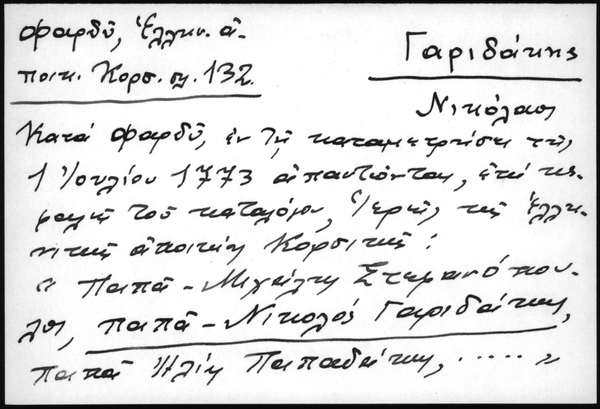 Φαρδῦ, Ἑλλην. ἀ-
ποικ. Κορσ. ση. 132.
Γαριδάκης
Νικόλαος
Κατά Φαρδῦ, ἐν τῇ καταμετρήσει τῆς
1 Ἰουλίου 1773 ἀπαντῶνται, ἐπί κε-
φαλῆς τοῦ καταλόγου, Ἱερεῖς τῆς Ἑλλη-
νικῆς ἀποικίας Κορσικῆς :
" Παπᾶ - Μιχαήλης Στεφανόπου-
λος, παπᾶ - Νικολός Γαριδάκης,
παπᾶ Ἠλίας Παπαδάκης, ..... "